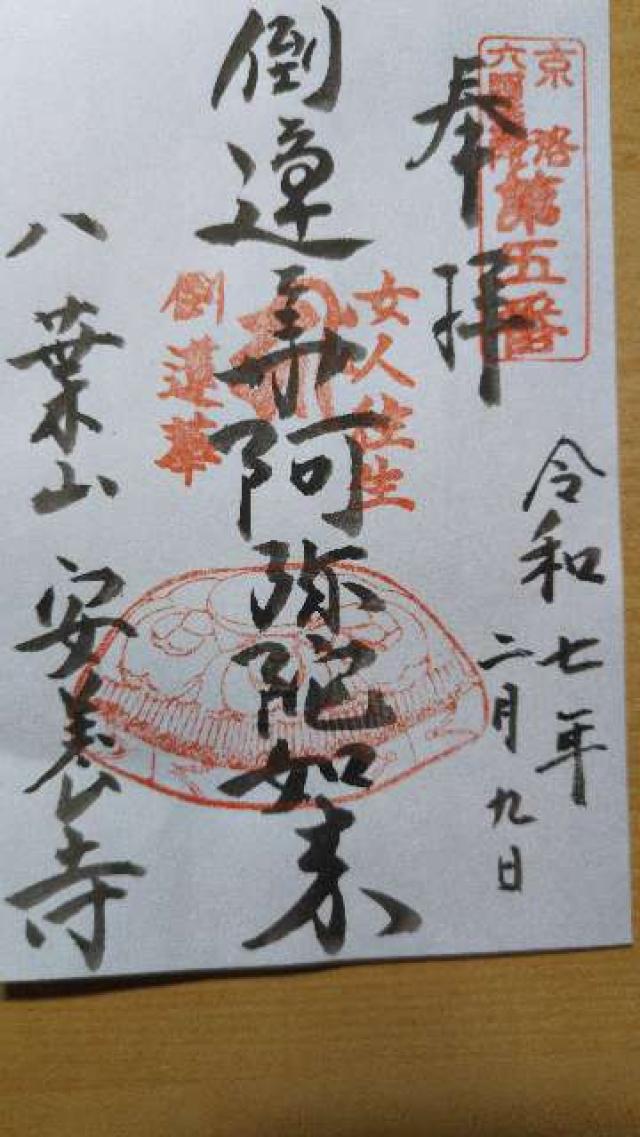 奉拝
京洛
六阿弥陀
第五番
令和七年
二月九日
倒蓮華阿弥陀如来
女人往生
倒蓮華
八葉山安養寺